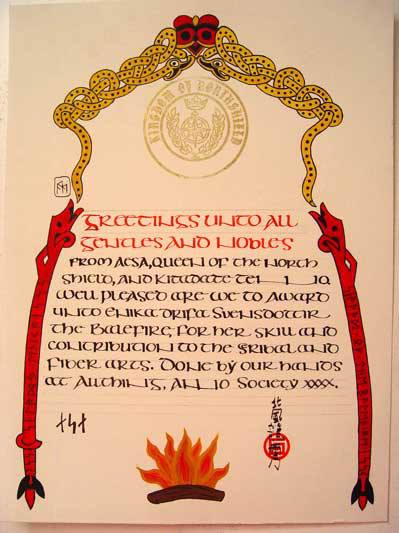 KINGDOM OF NORTHSHIELD
Greetings unto all
gentles and nobles
From Aesa, Queen of the North
Shield, and Kitadate
well pleased are we to award
unto Drifa Svensdottir
the Balefire, for her skill and
contribution to the and
Fiber arts. Done by our hands
at Society xxxx.